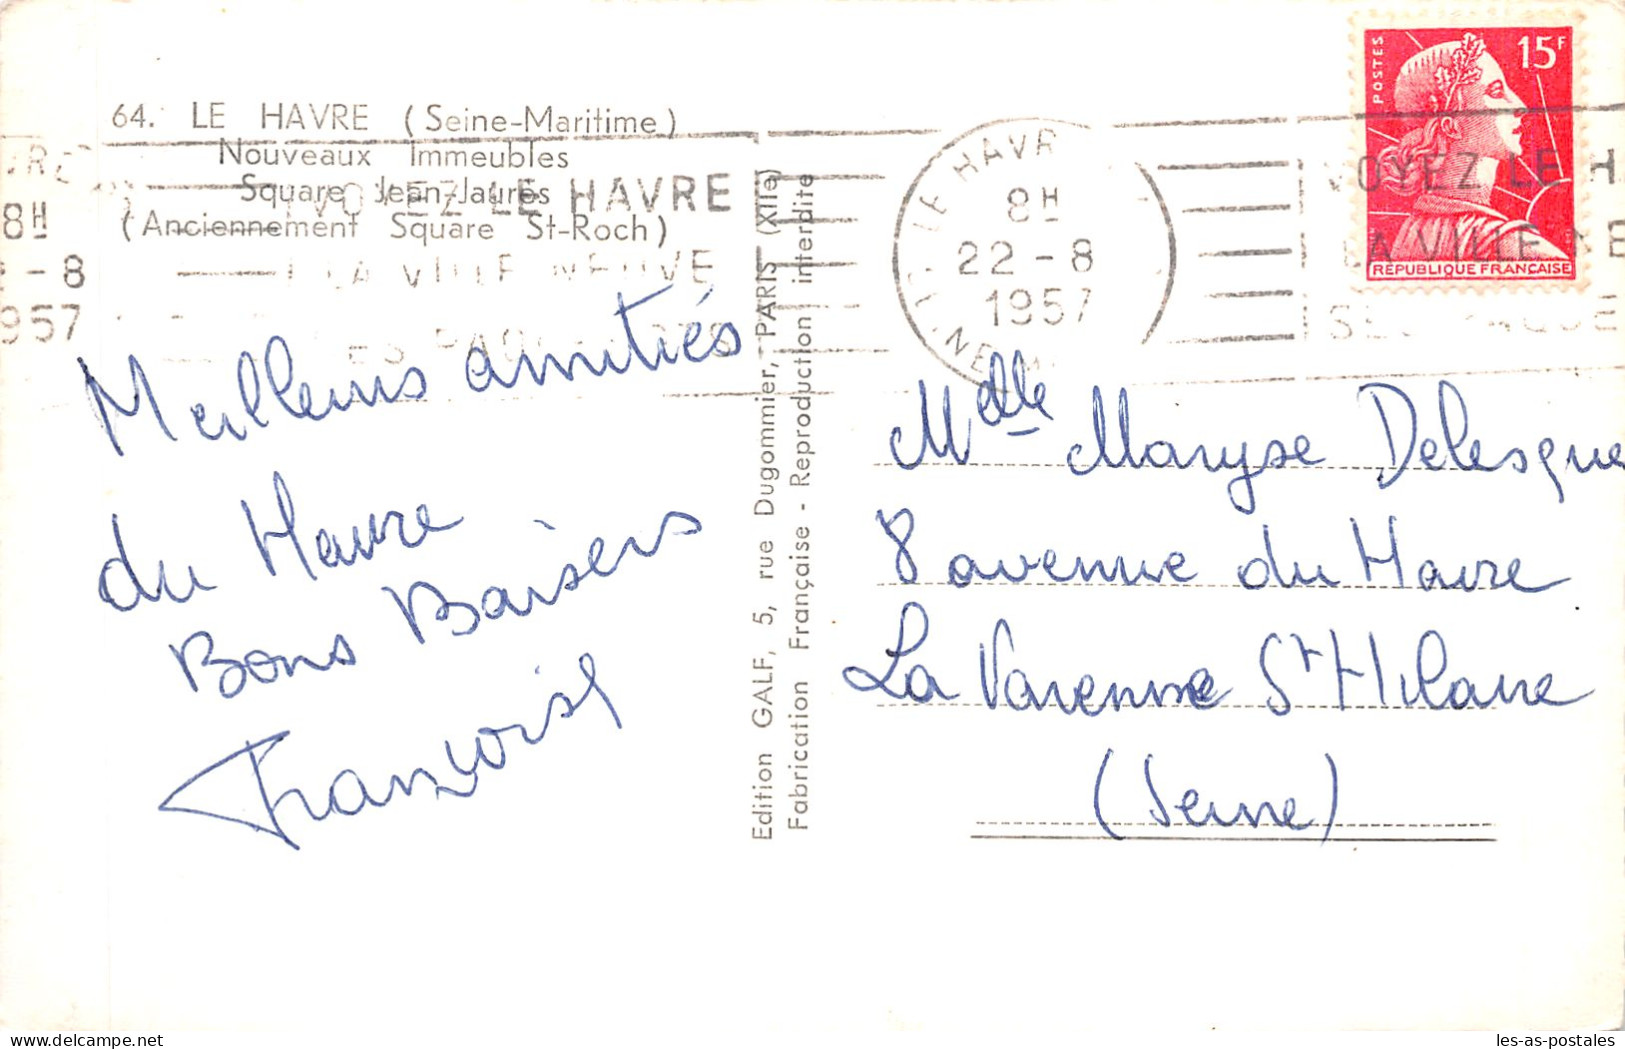 64. LE HAVRE (Seine-Maritime)
Nouveaux Immeubles
Square Jean-Jaurès
(Anciennement Square St-Roch)
VRE
8H
- 8
957
VOYEZ LE HAVRE
LA VILLE NEUVE
SES PAQUEBOTS
Meilleurs amitiés
du Havre
Bons Baisers
Françoise
Edition GALF, 5, rue Dugommier, PARIS (XIIe)
Fabrication Française - Reproduction interdite
LE HAVRE
8H
22 - 8
1957
POSTES
15F
REPUBLIQUE FRANÇAISE
VOYEZ LE H
LA VILLE NE
SES PAQUE
Mdlle Maryse Delesque
8 avenue du Havre
La Varenne St Hilaire
(Seine)
les-as-postales